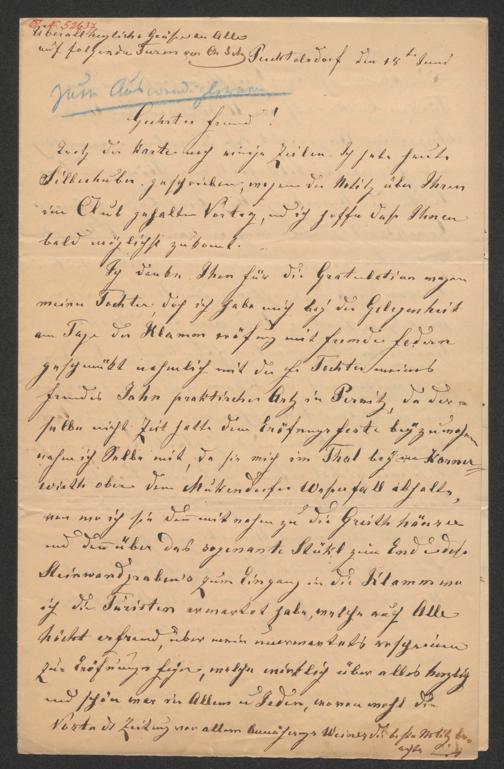 N. 52637
Überall herzliche Grüße an Alle
auf folgende Turen von
Perchtoldsdorf den 18ten Juni
zum Auswendiglernen
Geehrter Freund!
Trotz der Karte noch einige Zeilen. Ich habe heute
Silberhuber geschrieben, wegen der Notitz über Ihren
im Club gehalten Vortrag, und ich hoffe daß Ihnen
bald möglichst zukomt.
Ich danke Ihnen für die Gratulation wegen
meiner Tochter doch ich habe mich bey der Gelegenheit
am Tage der Klamm eröfnung mit fremde Federn
geschmükt nehmlich mit der Tochter meines
Freundes Jahn praktischer Arzt in Pernitz, da der-
selbe nicht Zeit hatte dem Eröfnungsfeste beyzuwohnen
nahm ich Selbe mit, da sie mich im Thal beym Karner-
wirth ober dem Mükendorfer Wasserfall abholte,
von wo ich sie dann mitnahm zu die Greithhäuser
und dann über das sogenante Stükl zum Ende des
Steinwandgrabens zum Eingang in die Klamm wo
ich die Turisten erwartet habe, welche auch Alle
höchst erfreud, über mein unerwartetes erscheinen
zur Eröfnungs feyer, welche wirklich über alles herzlich
und schön war in Allem u Jeden, wovon wohl die
Vorstadt Zeitung vor allem Wiener die beste Notitz